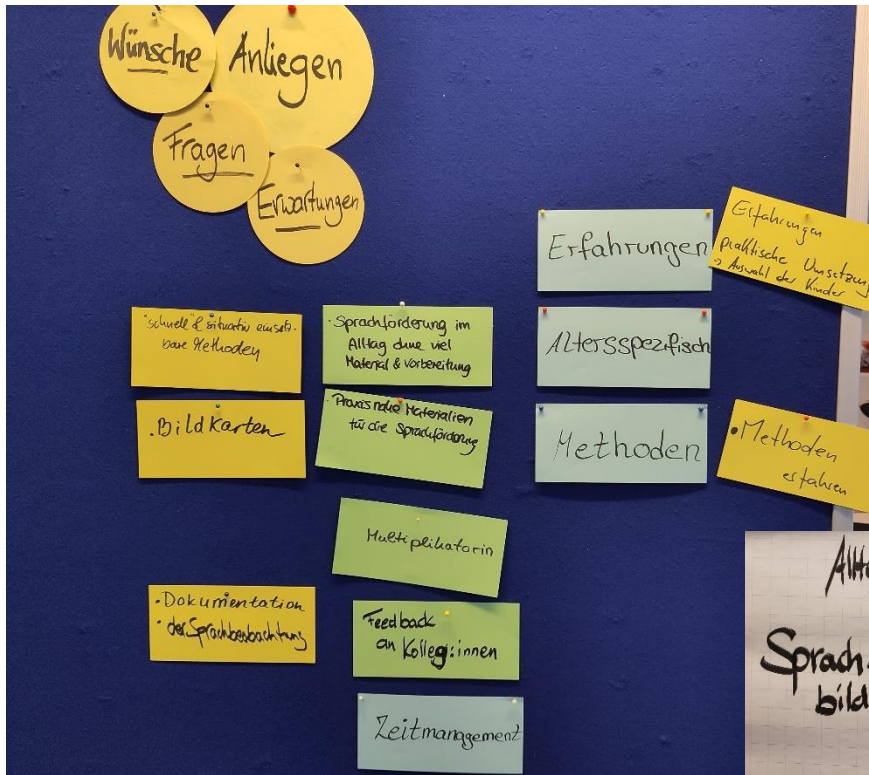 Wünsche
Anliegen
Fragen
Erwartungen
"schnell" & situativ einsetz-
bare Methoden
· Bildkarten
· Dokumentation
· der Sprachbeobachtung
· Sprachförderung im
Alltag ohne viel
Material & Vorbereitung
· Praxisnahe Materialien
für die Sprachförderung
Multiplikatorin
Feedback
an Kolleg:innen
Zeitmanagement
Erfahrungen
Altersspezifisch
Methoden
Erfahrungen
praktische Umsetzung
→ Auswahl der Kinder
• Methoden
erfahren
Allt
Sprach-
bild